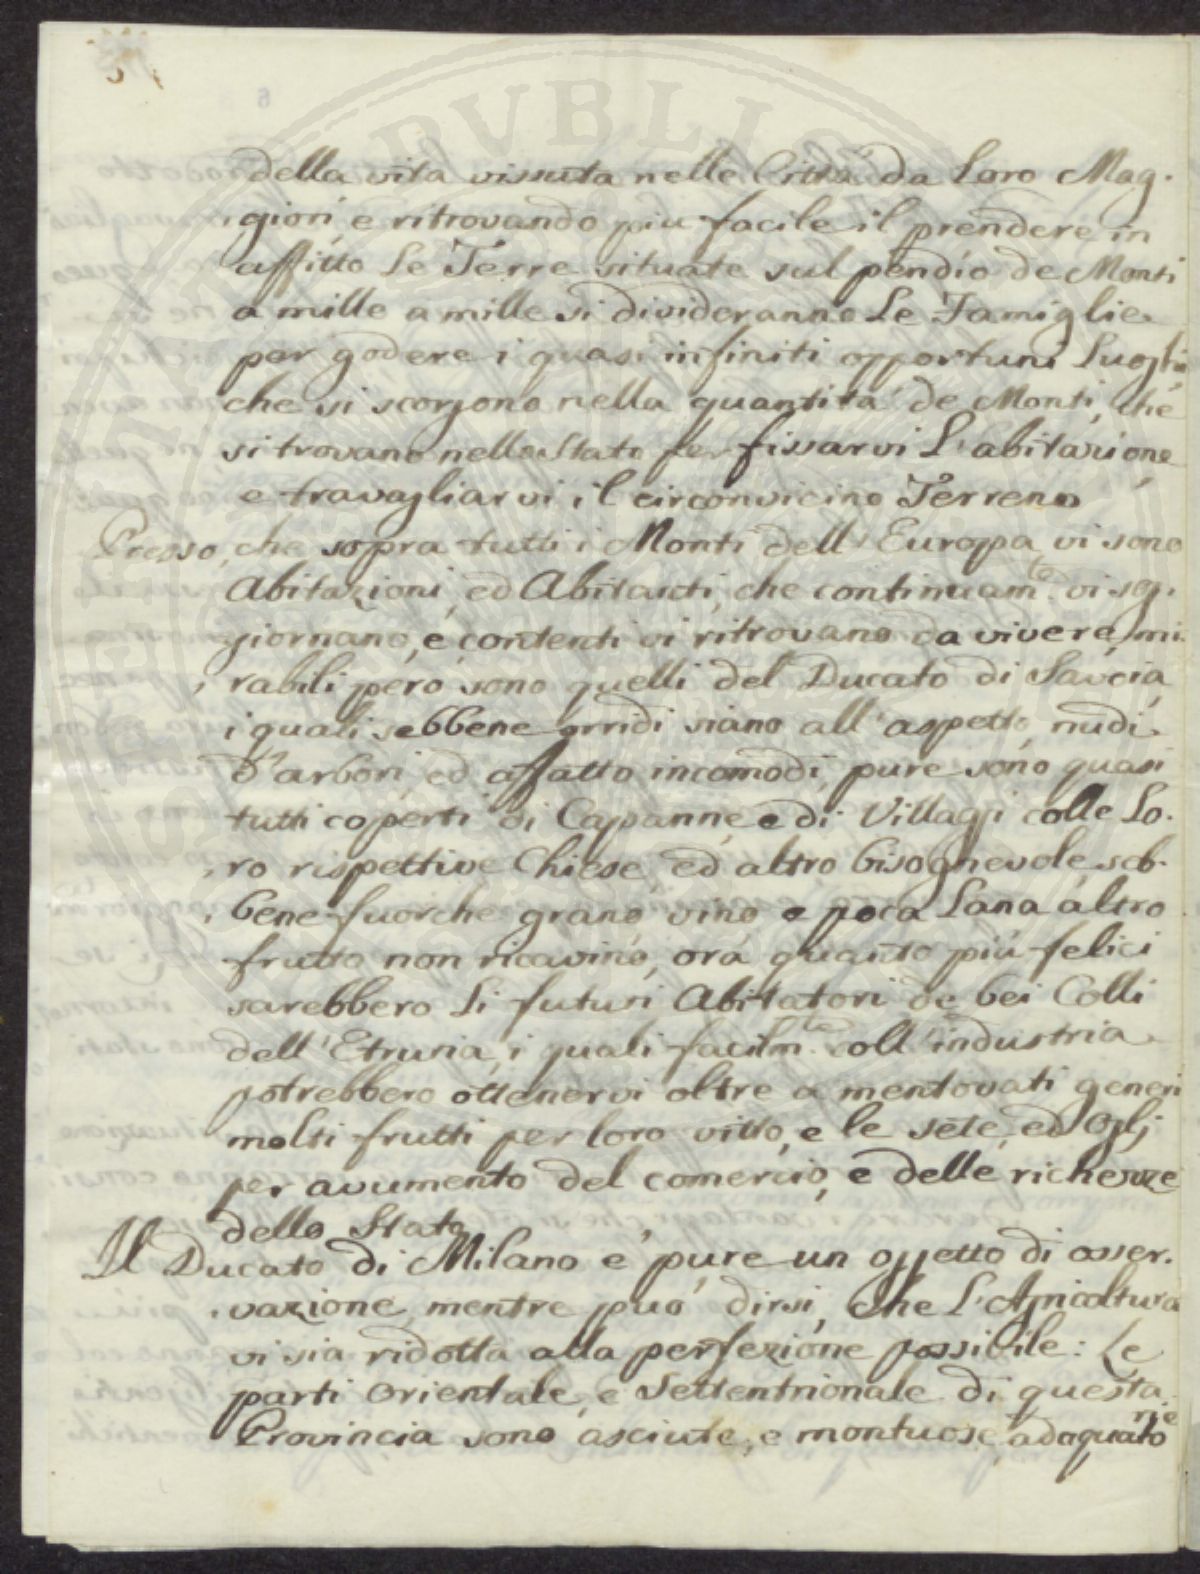 della vita vissuta nelle Città da Loro Mag.
giori e ritrovando piu facile il prendere in
affitto Le Terre situate sul pendio de Monti
a mille a mille si divideranno Le Famiglie
per godere i quasi infiniti opportuni Luoghi
che si scorgono nella quantità de Monti, che
si trovano nello Stato per fissarvi L'abitazione
e travagliarvi il circonvicino Terreno
Presso, che sopra tutti i Monti dell'Europa vi sono
Abitazioni, ed Abitanti, che continuam.te vi sog.
giornano, e contenti vi ritrovano da vivere, mi.
rabili però sono quelli del Ducato di Savoia
i quali sebbene orridi siano all'aspetto, nudi
d'arbori, ed affatto incomodi, pure sono quasi
tutti coperti di Capanne, e di Villaggi colle Lo.
ro rispettive Chiese, ed altro bisognevole, seb.
bene fuorche grano, vino e poca Lana altro
frutto non ricavino, ora quanto più felici
sarebbero Li futuri Abitatori de bei Colli
dell'Etruria, i quali facilm.te coll'industria
potrebbero ottenervi oltre a mentovati generi
molti frutti per loro vitto, e le sete, ed Oglj
per avumento del comercio, e delle richezze
dello Stato
Il Ducato di Milano e' pure un oggetto di osser.
vazione, mentre può dirsi, che L'Agricoltura
vi sia ridotta alla perfezione possibile: Le
parti Orientale, e Settentrionale di questa
Provincia sono asciute, e montuose, adaquato
rie
PVBLIC